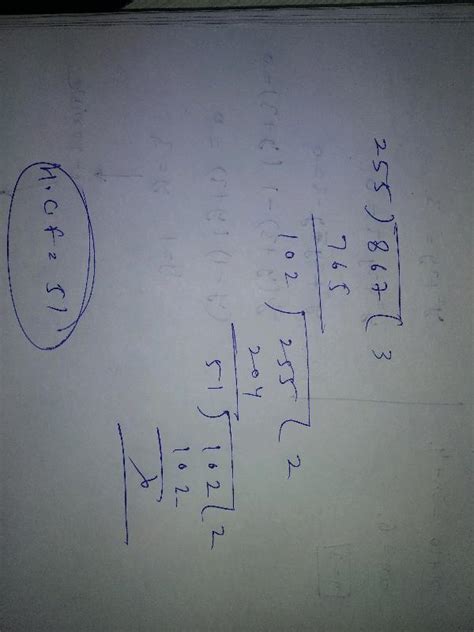 255 ) 867 ( 3
765
102 ) 255 ( 2
204
51 ) 102 ( 2
102
0
H.C.f = 51